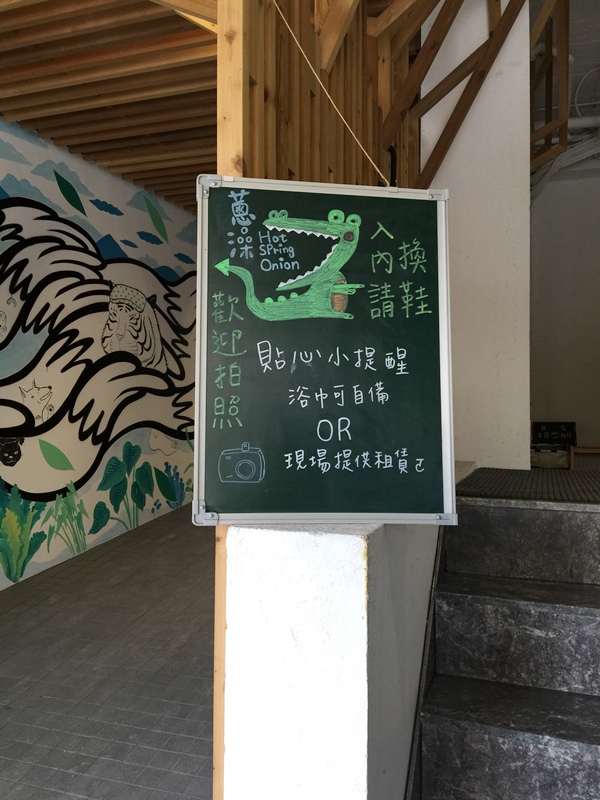 蔥澡
Hot
Spring
Onion
入內請
換鞋
歡迎拍照
貼心小提醒
浴巾可自備
OR
現場提供租賃ㄛ